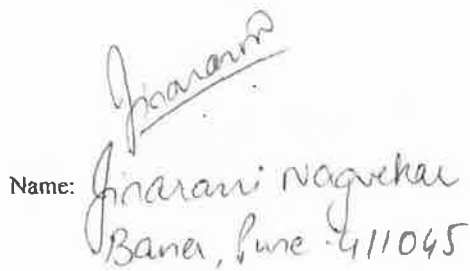 Jinarani
Name: Jinarani Nagvekar
Baner, Pune 411045